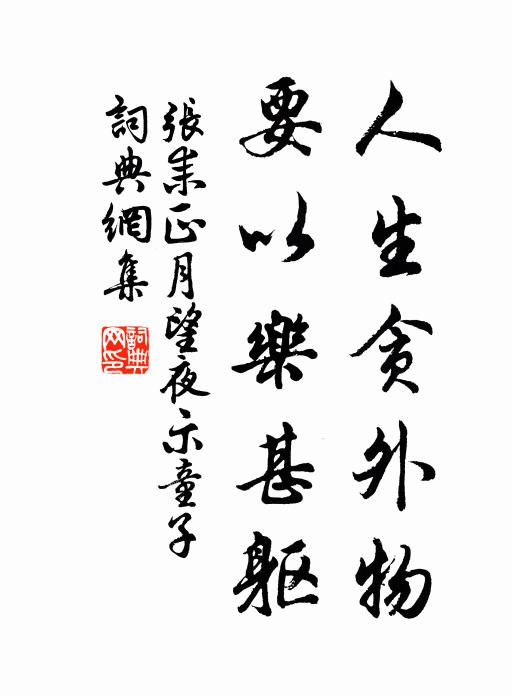 人生貪外物
要以樂甚軀
張耒正月望夜示童子
詞典網集
詞典網印